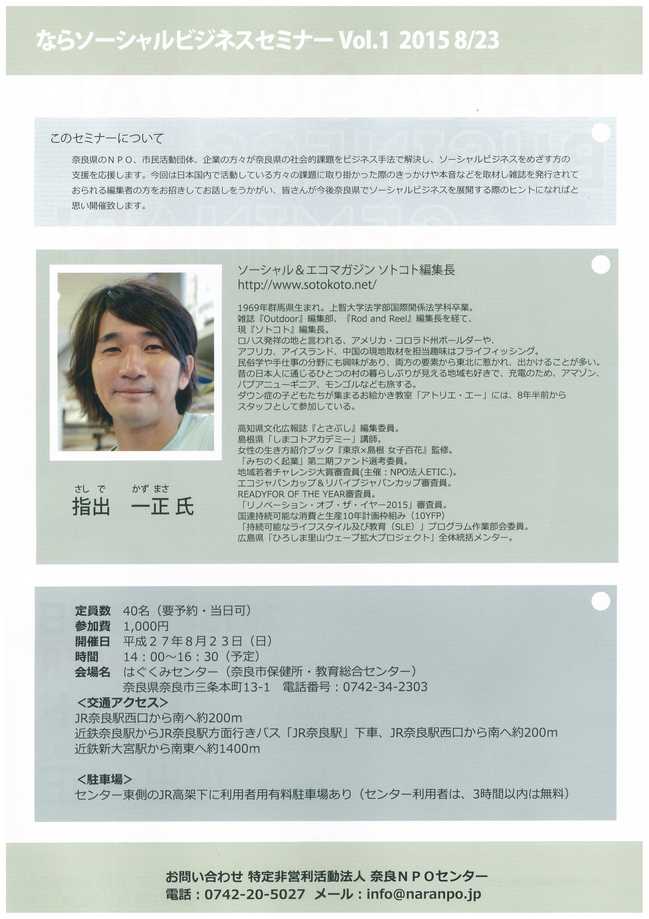 ならソーシャルビジネスセミナー Vol.1 2015 8/23
このセミナーについて
奈良県のＮＰＯ、市民活動団体、企業の方々が奈良県の社会的課題をビジネス手法で解決し、ソーシャルビジネスをめざす方の
支援を応援します。今回は日本国内で活動している方々の課題に取り掛かった際のきっかけや本音などを取材し雑誌を発行されて
おられる編集者の方をお招きしてお話しをうかがい、皆さんが今後奈良県でソーシャルビジネスを展開する際のヒントになればと
思い開催致します。
ソーシャル＆エコマガジン ソトコト編集長
http://www.sotokoto.net/
1969年群馬県生まれ。上智大学法学部国際関係法学科卒業。
雑誌『Outdoor』編集部、『Rod and Reel』編集長を経て、
現『ソトコト』編集長。
ロハス発祥の地と言われる、アメリカ・コロラド州ボールダーや、
アフリカ、アイスランド、中国の現地取材を担当趣味はフライフィッシング。
民俗学や手仕事の分野にも興味があり、両方の要素から東北に惹かれ、出かけることが多い。
昔の日本人に通じるひとつの村の暮らしぶりが見える地域も好きで、充電のため、アマゾン、
パプアニューギニア、モンゴルなども旅する。
ダウン症の子どもたちが集まるお絵かき教室「アトリエ・エー」には、8年半前から
スタッフとして参加している。
高知県文化広報誌『とさぶし』編集委員。
島根県「しまコトアカデミー」講師。
女性の生き方紹介ブック『東京×島根 女子百花』監修。
「みちのく起業」第二期ファンド選考委員。
地域若者チャレンジ大賞審査員(主催：NPO法人ETIC.)。
エコジャパンカップ＆リバイブジャパンカップ審査員。
READYFOR OF THE YEAR審査員。
「リノベーション・オブ・ザ・イヤー2015」審査員。
国連持続可能な消費と生産10年計画枠組み（10YFP）
「持続可能なライフスタイル及び教育（SLE）」プログラム作業部会委員。
広島県「ひろしま里山ウェーブ拡大プロジェクト」全体統括メンター。
さし で かず まさ
指出 一正 氏
定員数 40名（要予約・当日可）
参加費 1,000円
開催日 平成２７年８月２３日（日）
時間 14：00～16：30（予定）
会場名 はぐくみセンター（奈良市保健所・教育総合センター）
奈良県奈良市三条本町13-1 電話番号：0742-34-2303
＜交通アクセス＞
JR奈良駅西口から南へ約200m
近鉄奈良駅からJR奈良駅方面行きバス「JR奈良駅」下車、JR奈良駅西口から南へ約200m
近鉄新大宮駅から南東へ約1400m
＜駐車場＞
センター東側のJR高架下に利用者用有料駐車場あり（センター利用者は、3時間以内は無料）
お問い合わせ 特定非営利活動法人 奈良ＮＰＯセンター
電話：0742-20-5027 メール：info@naranpo.jp